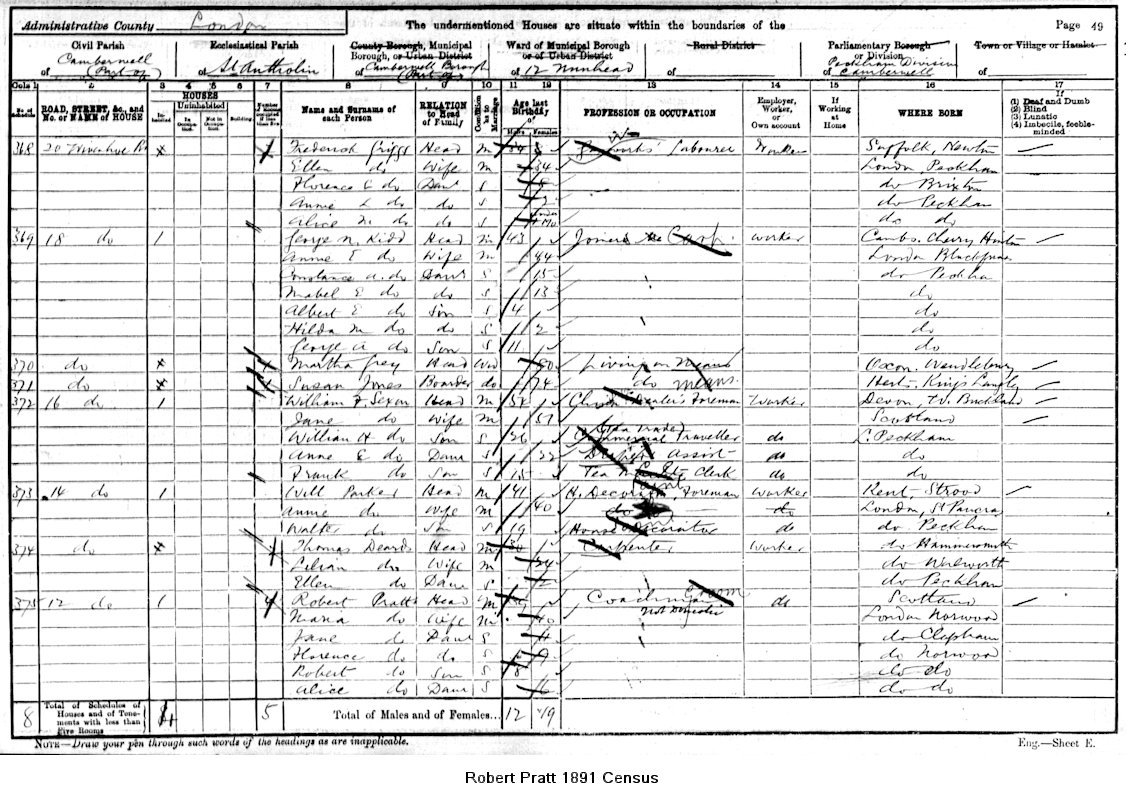 Administrative County London
The undermentioned Houses are situate within the boundaries of the
Page 49
Civil Parish
of Camberwell (Part of)
Ecclesiastical Parish
of St Antholin
County Borough, Municipal Borough, or Urban District
of Camberwell Borough (Part of)
Ward of Municipal Borough or of Urban District
of 12 Nunhead
Rural District
of
Parliamentary Borough or Division
of Peckham Division Camberwell
Town or Village or Hamlet
of
Cols 1 2 3 4 5 6 7 8 9 10 11 12 13 14 15 16 17
No. of Schedule
ROAD, STREET, &c., and No. or NAME of HOUSE
HOUSES
Inhabited
Uninhabited
In Occupation
Not in Occupation
Building
Name and Surname of each Person
RELATION to Head of Family
Condition as to Marriage
Age last Birthday of
Males Females
PROFESSION OR OCCUPATION
Employer, Worker, or Own account
If Working at Home
WHERE BORN
If (1) Deaf and Dumb (2) Blind (3) Lunatic (4) Imbecile, feeble-minded
368 20 Frederick Griggs Head M 34 Labourer Worker Suffolk, Newton
Ellen do Wife M 34 London Peckham
Florence E do Daur S do Brixton
Annie L do do S 2 do Peckham
Alice M do do S do do
369 18 do 1 George N. Kidd Head M 43 Joiner Carp. Worker Cambs. Cherry Hinton
Annie E do Wife M 44 London Blackfriars
Constance A. do Daur S 15 do Peckham
Mabel E do do S 13 do
Albert E do Son S 4 do
Hilda M do do S 2 do
George A do Son S 11 do
370 do Martha Grey Head Wid 80 Living on Means Oxon. Wendlebury
371 do Susan Jones Boarder do 74 do means Herts, Kings Langley
372 16 do 1 William F. Sexon Head M 52 Foreman Worker Devon,
Jane do Wife M 57 Scotland
William H do Son S 26 Commercial Traveller do L. Peckham
Anne E do Daur S 22 Assist do do
Frank do Son S 15 Tea Clerk do do
373 14 do 1 Will Parker Head M 41 H. Decorator, Foreman Worker Kent, Strood
Annie do Wife M 40 do do London, St Pancras
Walter do Son S 19 House Decorator do do Peckham
374 do Thomas Deards Head M 30 Carpenter Worker do Hammersmith
Lilian do Wife M 24 do Walworth
Ellen do Daur S 2 do Peckham
375 12 do 1 4 Robert Pratt Head M Coachman Not Domestic do Scotland
Maria do Wife M 40 London Norwood
Jane do Daur S do Clapham
Florence do do S 9 do Norwood
Robert do Son S 8 do do
Alice do Daur S 6 do do
8 Total of Schedules of Houses and of Tenements with less than Five Rooms 4 5 Total of Males and of Females... 12 19
NOTE—Draw your pen through such words of the headings as are inapplicable.
Eng.—Sheet E.
Robert Pratt 1891 Census